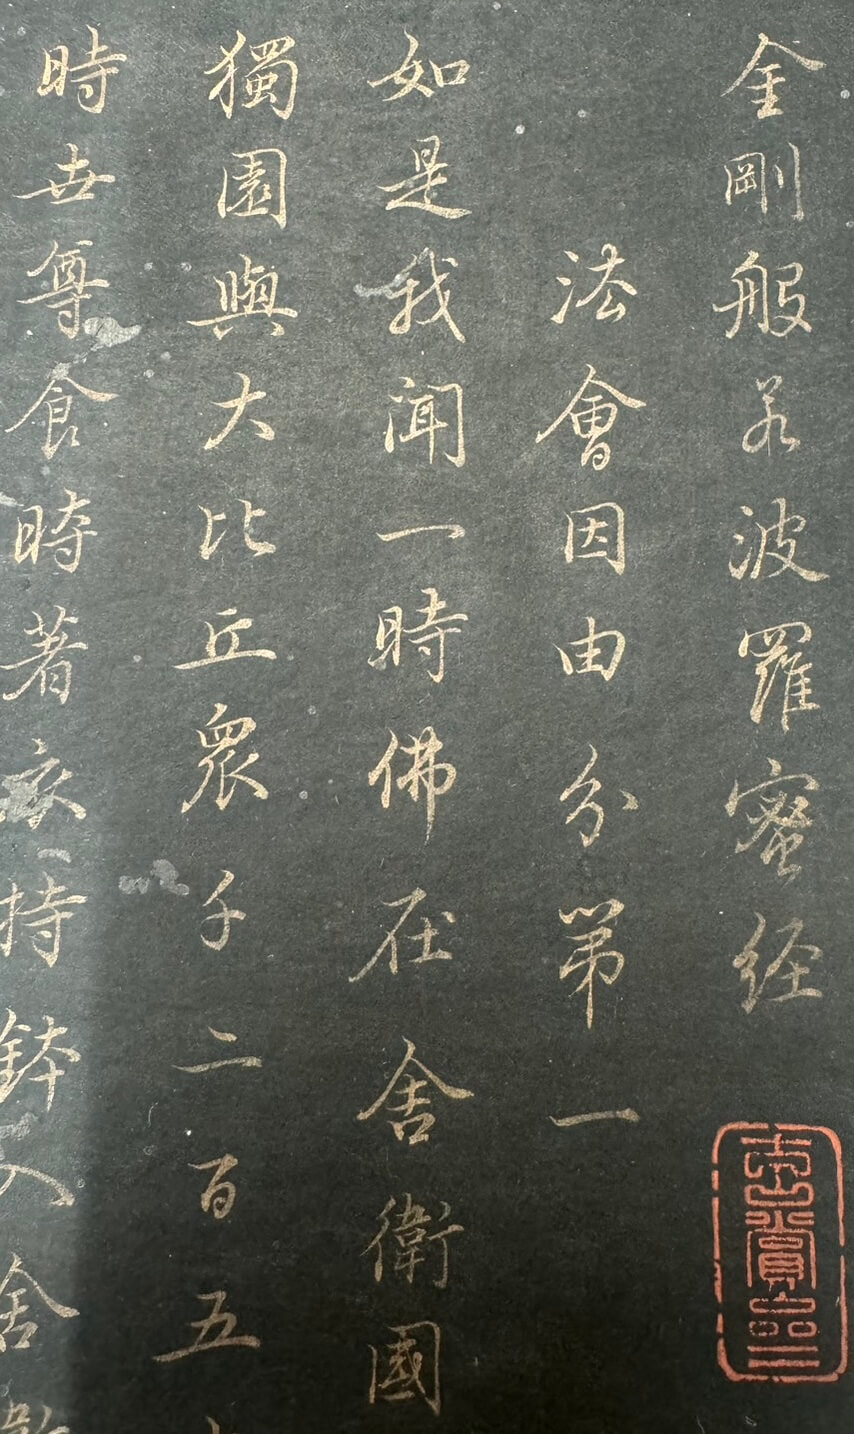 金剛般若波羅蜜经
法會因由分第一
如是我聞一時佛在舍衛國
獨園與大比丘衆千二百五
時世尊食時著衣持鉢入舍